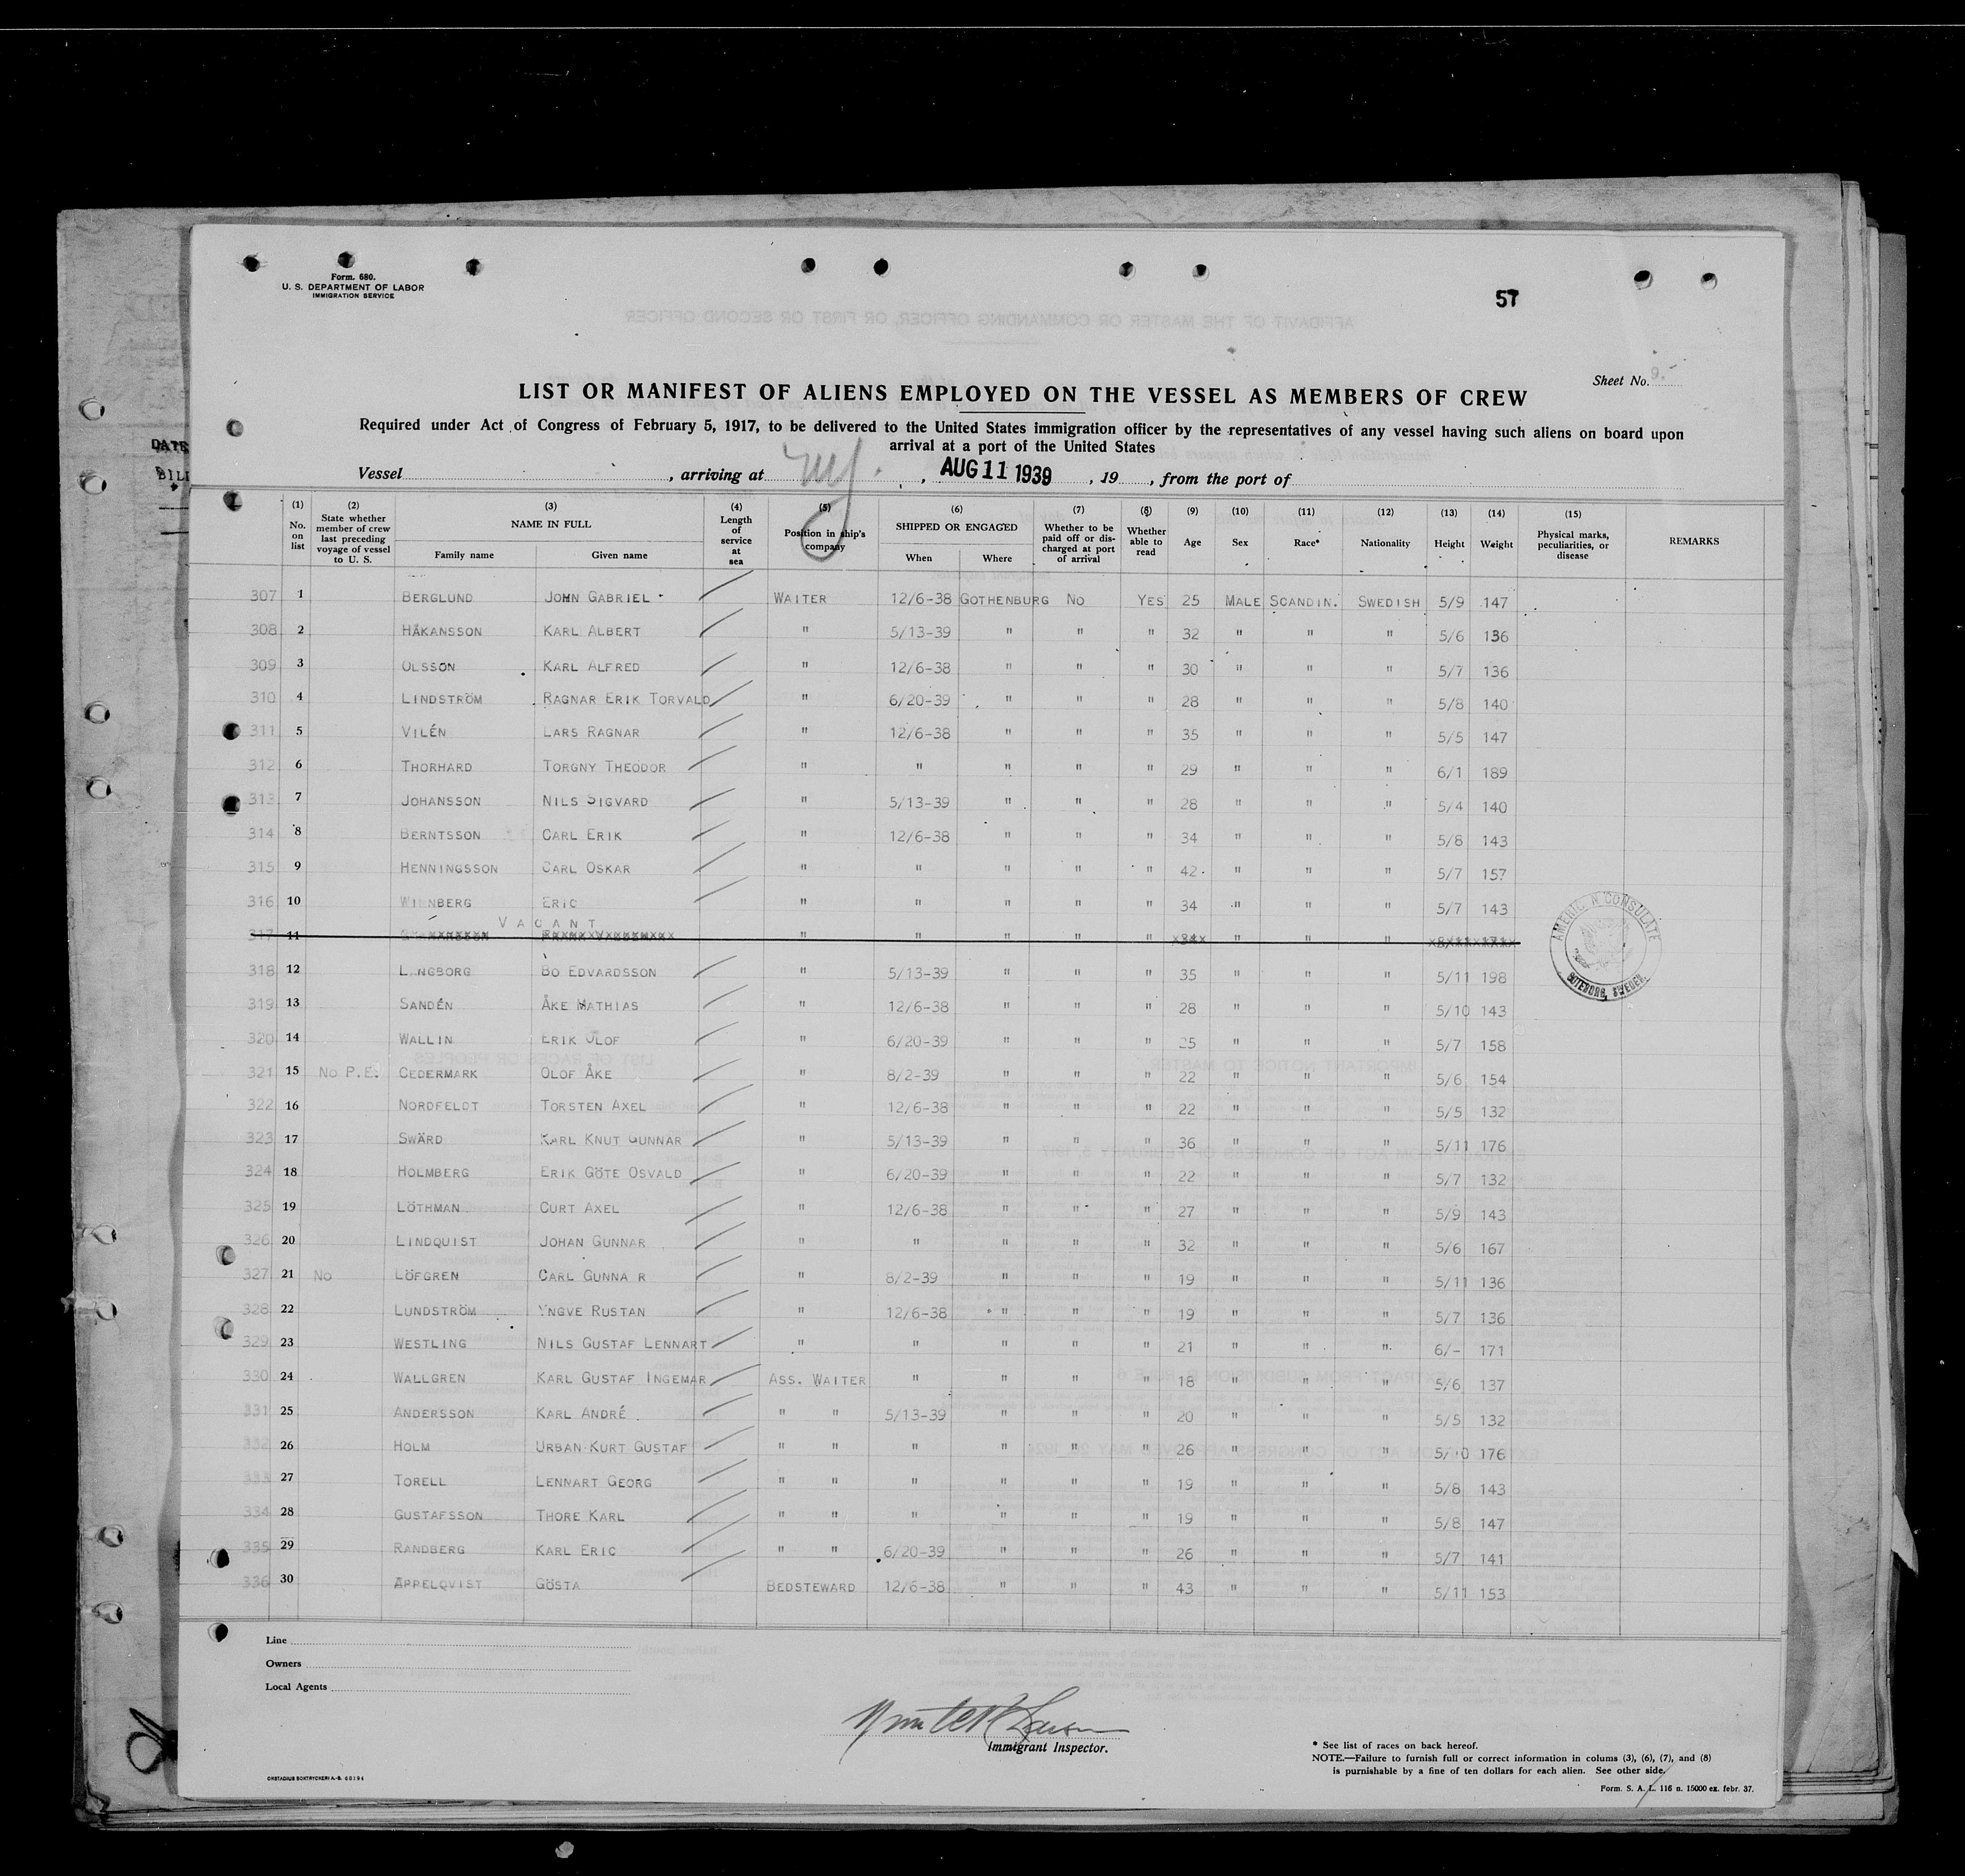 Form. 680.
U. S. DEPARTMENT OF LABOR
IMMIGRATION SERVICE
57
Sheet No. 9.-
LIST OR MANIFEST OF ALIENS EMPLOYED ON THE VESSEL AS MEMBERS OF CREW
Required under Act of Congress of February 5, 1917, to be delivered to the United States immigration officer by the representatives of any vessel having such aliens on board upon
arrival at a port of the United States
DATE
Vessel , arriving at ny. , AUG 11 1939 , 19 , from the port of
(1) No. on list (2) State whether member of crew last preceding voyage of vessel to U. S. (3) NAME IN FULL Family name Given name (4) Length of service at sea (5) Position in ship's company (6) SHIPPED OR ENGAGED When Where (7) Whether to be paid off or discharged at port of arrival (8) Whether able to read (9) Age (10) Sex (11) Race* (12) Nationality (13) Height (14) Weight (15) Physical marks, peculiarities, or disease REMARKS
307 1 BERGLUND JOHN GABRIEL WAITER 12/6-38 GOTHENBURG NO YES 25 MALE SCANDIN. SWEDISH 5/9 147
308 2 HÅKANSSON KARL ALBERT " 5/13-39 " " " 32 " " " 5/6 136
309 3 OLSSON KARL ALFRED " 12/6-38 " " " 30 " " " 5/7 136
310 4 LINDSTRÖM RAGNAR ERIK TORVALD " 6/20-39 " " " 28 " " " 5/8 140
311 5 VILÉN LARS RAGNAR " 12/6-38 " " " 35 " " " 5/5 147
312 6 THORHARD TORGNY THEODOR " " " " " 29 " " " 6/1 189
313 7 JOHANSSON NILS SIGVARD " 5/13-39 " " " 28 " " " 5/4 140
314 8 BERNTSSON CARL ERIK " 12/6-38 " " " 34 " " " 5/8 143
315 9 HENNINGSSON CARL OSKAR " " " " " 42 " " " 5/7 157
316 10 WIENBERG ERIC " " " " " 34 " " " 5/7 143
VACANT
317 11 " " " " " 34 " " "
318 12 LJNGBORG BO EDVARDSSON " 5/13-39 " " " 35 " " " 5/11 198
319 13 SANDÉN ÅKE MATHIAS " 12/6-38 " " " 28 " " " 5/10 143
320 14 WALLIN ERIK OLOF " 6/20-39 " " " 25 " " " 5/7 158
321 15 NO P.E. CEDERMARK OLOF ÅKE " 8/2-39 " " " 22 " " " 5/6 154
322 16 NORDFELDT TORSTEN AXEL " 12/6-38 " " " 22 " " " 5/5 132
323 17 SWÄRD KARL KNUT GUNNAR " 5/13-39 " " " 36 " " " 5/11 176
324 18 HOLMBERG ERIK GÖTE OSVALD " 6/20-39 " " " 22 " " " 5/7 132
325 19 LÖTHMAN CURT AXEL " 12/6-38 " " " 27 " " " 5/9 143
326 20 LINDQUIST JOHAN GUNNAR " " " " " 32 " " " 5/6 167
327 21 NO LÖFGREN CARL GUNNA R " 8/2-39 " " " 19 " " " 5/11 136
328 22 LUNDSTRÖM YNGVE RUSTAN " 12/6-38 " " " 19 " " " 5/7 136
329 23 WESTLING NILS GUSTAF LENNART " " " " " 21 " " " 6/- 171
330 24 WALLGREN KARL GUSTAF INGEMAR ASS. WAITER " " " " 18 " " " 5/6 137
331 25 ANDERSSON KARL ANDRÉ " " 5/13-39 " " " 20 " " " 5/5 132
332 26 HOLM URBAN KURT GUSTAF " " " " " " 26 " " " 5/10 176
333 27 TORELL LENNART GEORG " " " " " " 19 " " " 5/8 143
334 28 GUSTAFSSON THORE KARL " " " " " " 19 " " " 5/8 147
335 29 RANDBERG KARL ERIC " " 6/20-39 " " " 26 " " " 5/7 141
336 30 APPELQVIST GÖSTA BEDSTEWARD 12/6-38 " " " 43 " " " 5/11 153
AMERICAN CONSULATE
GOTEBORG, SWEDEN.
Line
Owners
Local Agents
Immigrant Inspector.
* See list of races on back hereof.
NOTE.—Failure to furnish full or correct information in colums (3), (6), (7), and (8)
is punishable by a fine of ten dollars for each alien. See other side.
Form. S. A. L. 116 n. 15000 ex. febr. 37.